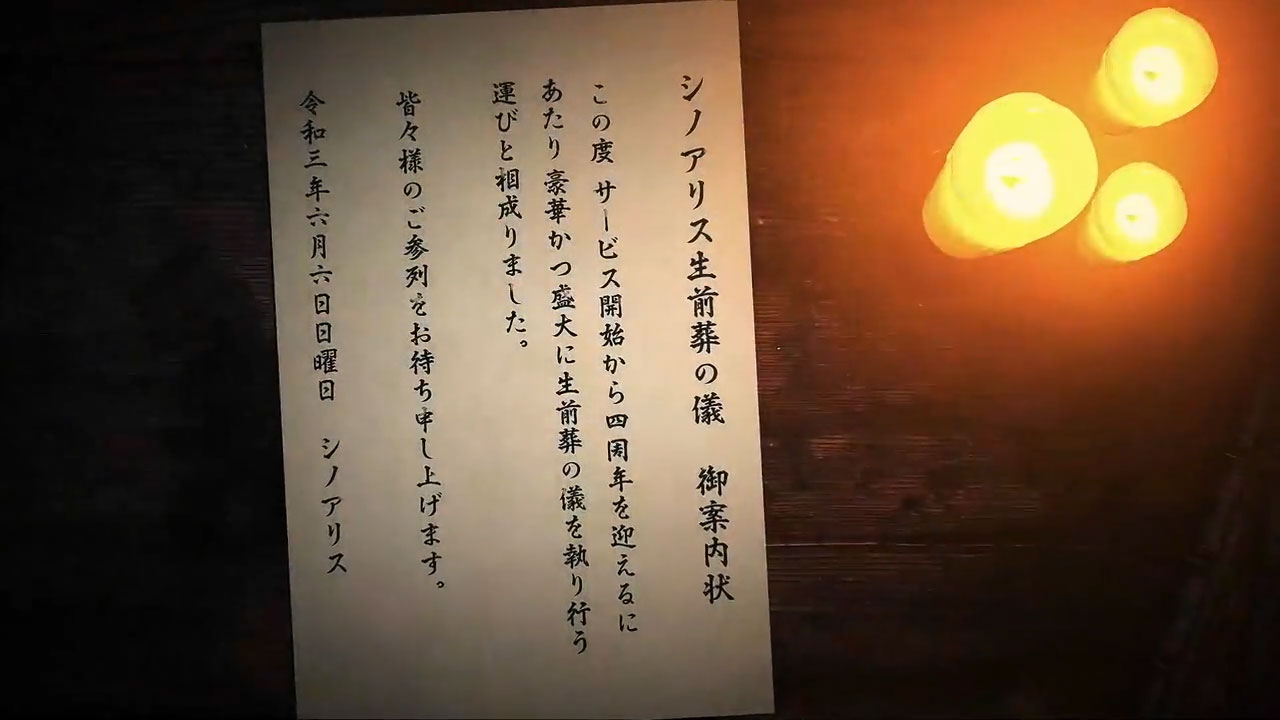 シノアリス生前葬の儀　御案内状
この度 サービス開始から四周年を迎えるに
あたり豪華かつ盛大に生前葬の儀を執り行う
運びと相成りました。
皆々様のご参列をお待ち申し上げます。
令和三年六月六日日曜日　シノアリス